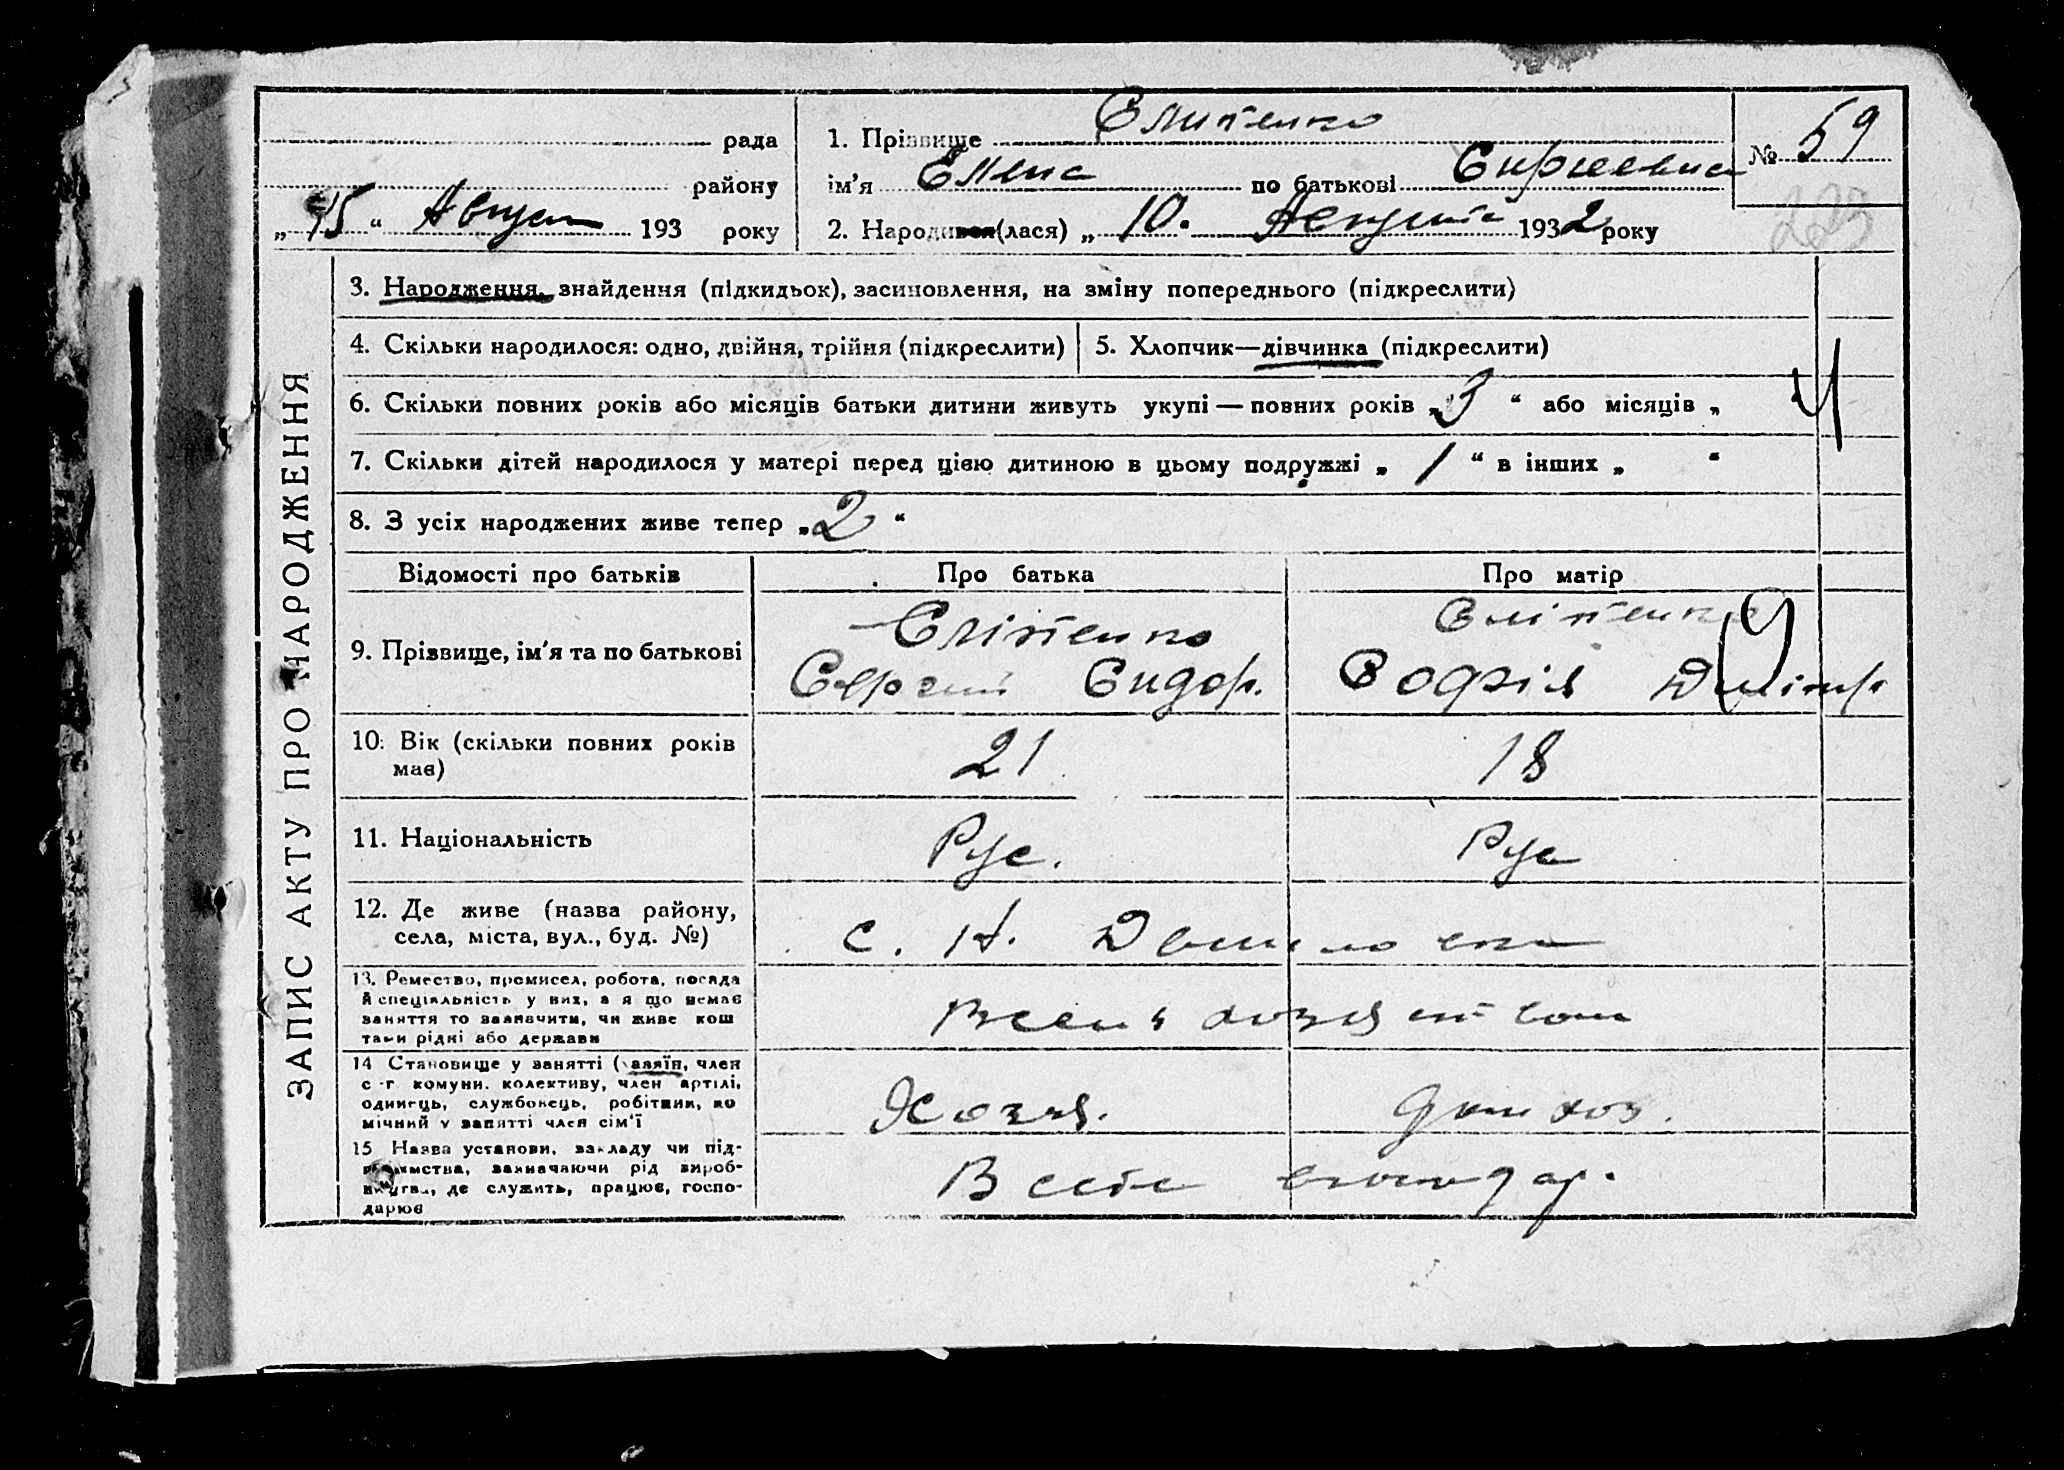 рада
1. Прізвище Сліпенко
№ 59
району
ім'я Елена по батькові Сиргеевна
225
„15“ Август 193 року
2. Народився(лася) „10. Август 1932 року
ЗАПИС АКТУ ПРО НАРОДЖЕННЯ
3. Народження, знайдення (підкидьок), засиновлення, на зміну попереднього (підкреслити)
4. Скільки народилося: одно, двійня, трійня (підкреслити)
5. Хлопчик—дівчинка (підкреслити)
6. Скільки повних років або місяців батьки дитини живуть укупі — повних років „3“ або місяців „
7. Скільки дітей народилося у матері перед цією дитиною в цьому подружжі „1“ в інших „ “
8. З усіх народжених живе тепер „2“
Відомості про батьків
Про батька
Про матір
9. Прізвище, ім'я та по батькові
Сліпенко
Сергий Сидор.
Сліпенко
Софія Дмітр
10. Вік (скільки повних років має)
21
18
11. Національність
Рус.
Рус
12. Де живе (назва району,
села, міста, вул., буд. №)
с. Н. Даниловка
13. Ремество, промисел, робота, посада
й спеціяльність у них, а я що немає
заняття то зазначити, чи живе кош
тами рідні або держави
14 Становище у занятті (хазяїн, член
с-г комуни. колективу, член артілі,
одинець, службовець, робітник, по
мічний у занятті член сім'ї
Хозяя.
15 Назва установи, закладу чи під-
приємства, зазначаючи рід вироб-
ництва, де служить, працює, госпо-
дарює
В селе